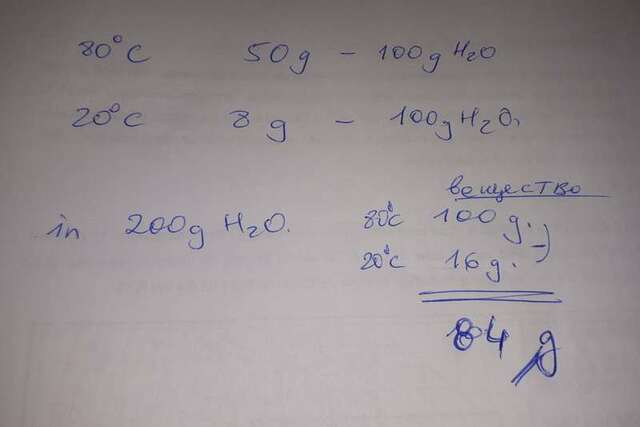 80°C 50g - 100g H2O
20°C 8g - 100g H2O.
вещество
in 200g H2O. 80°C 100g.
20°C 16g.
84 g